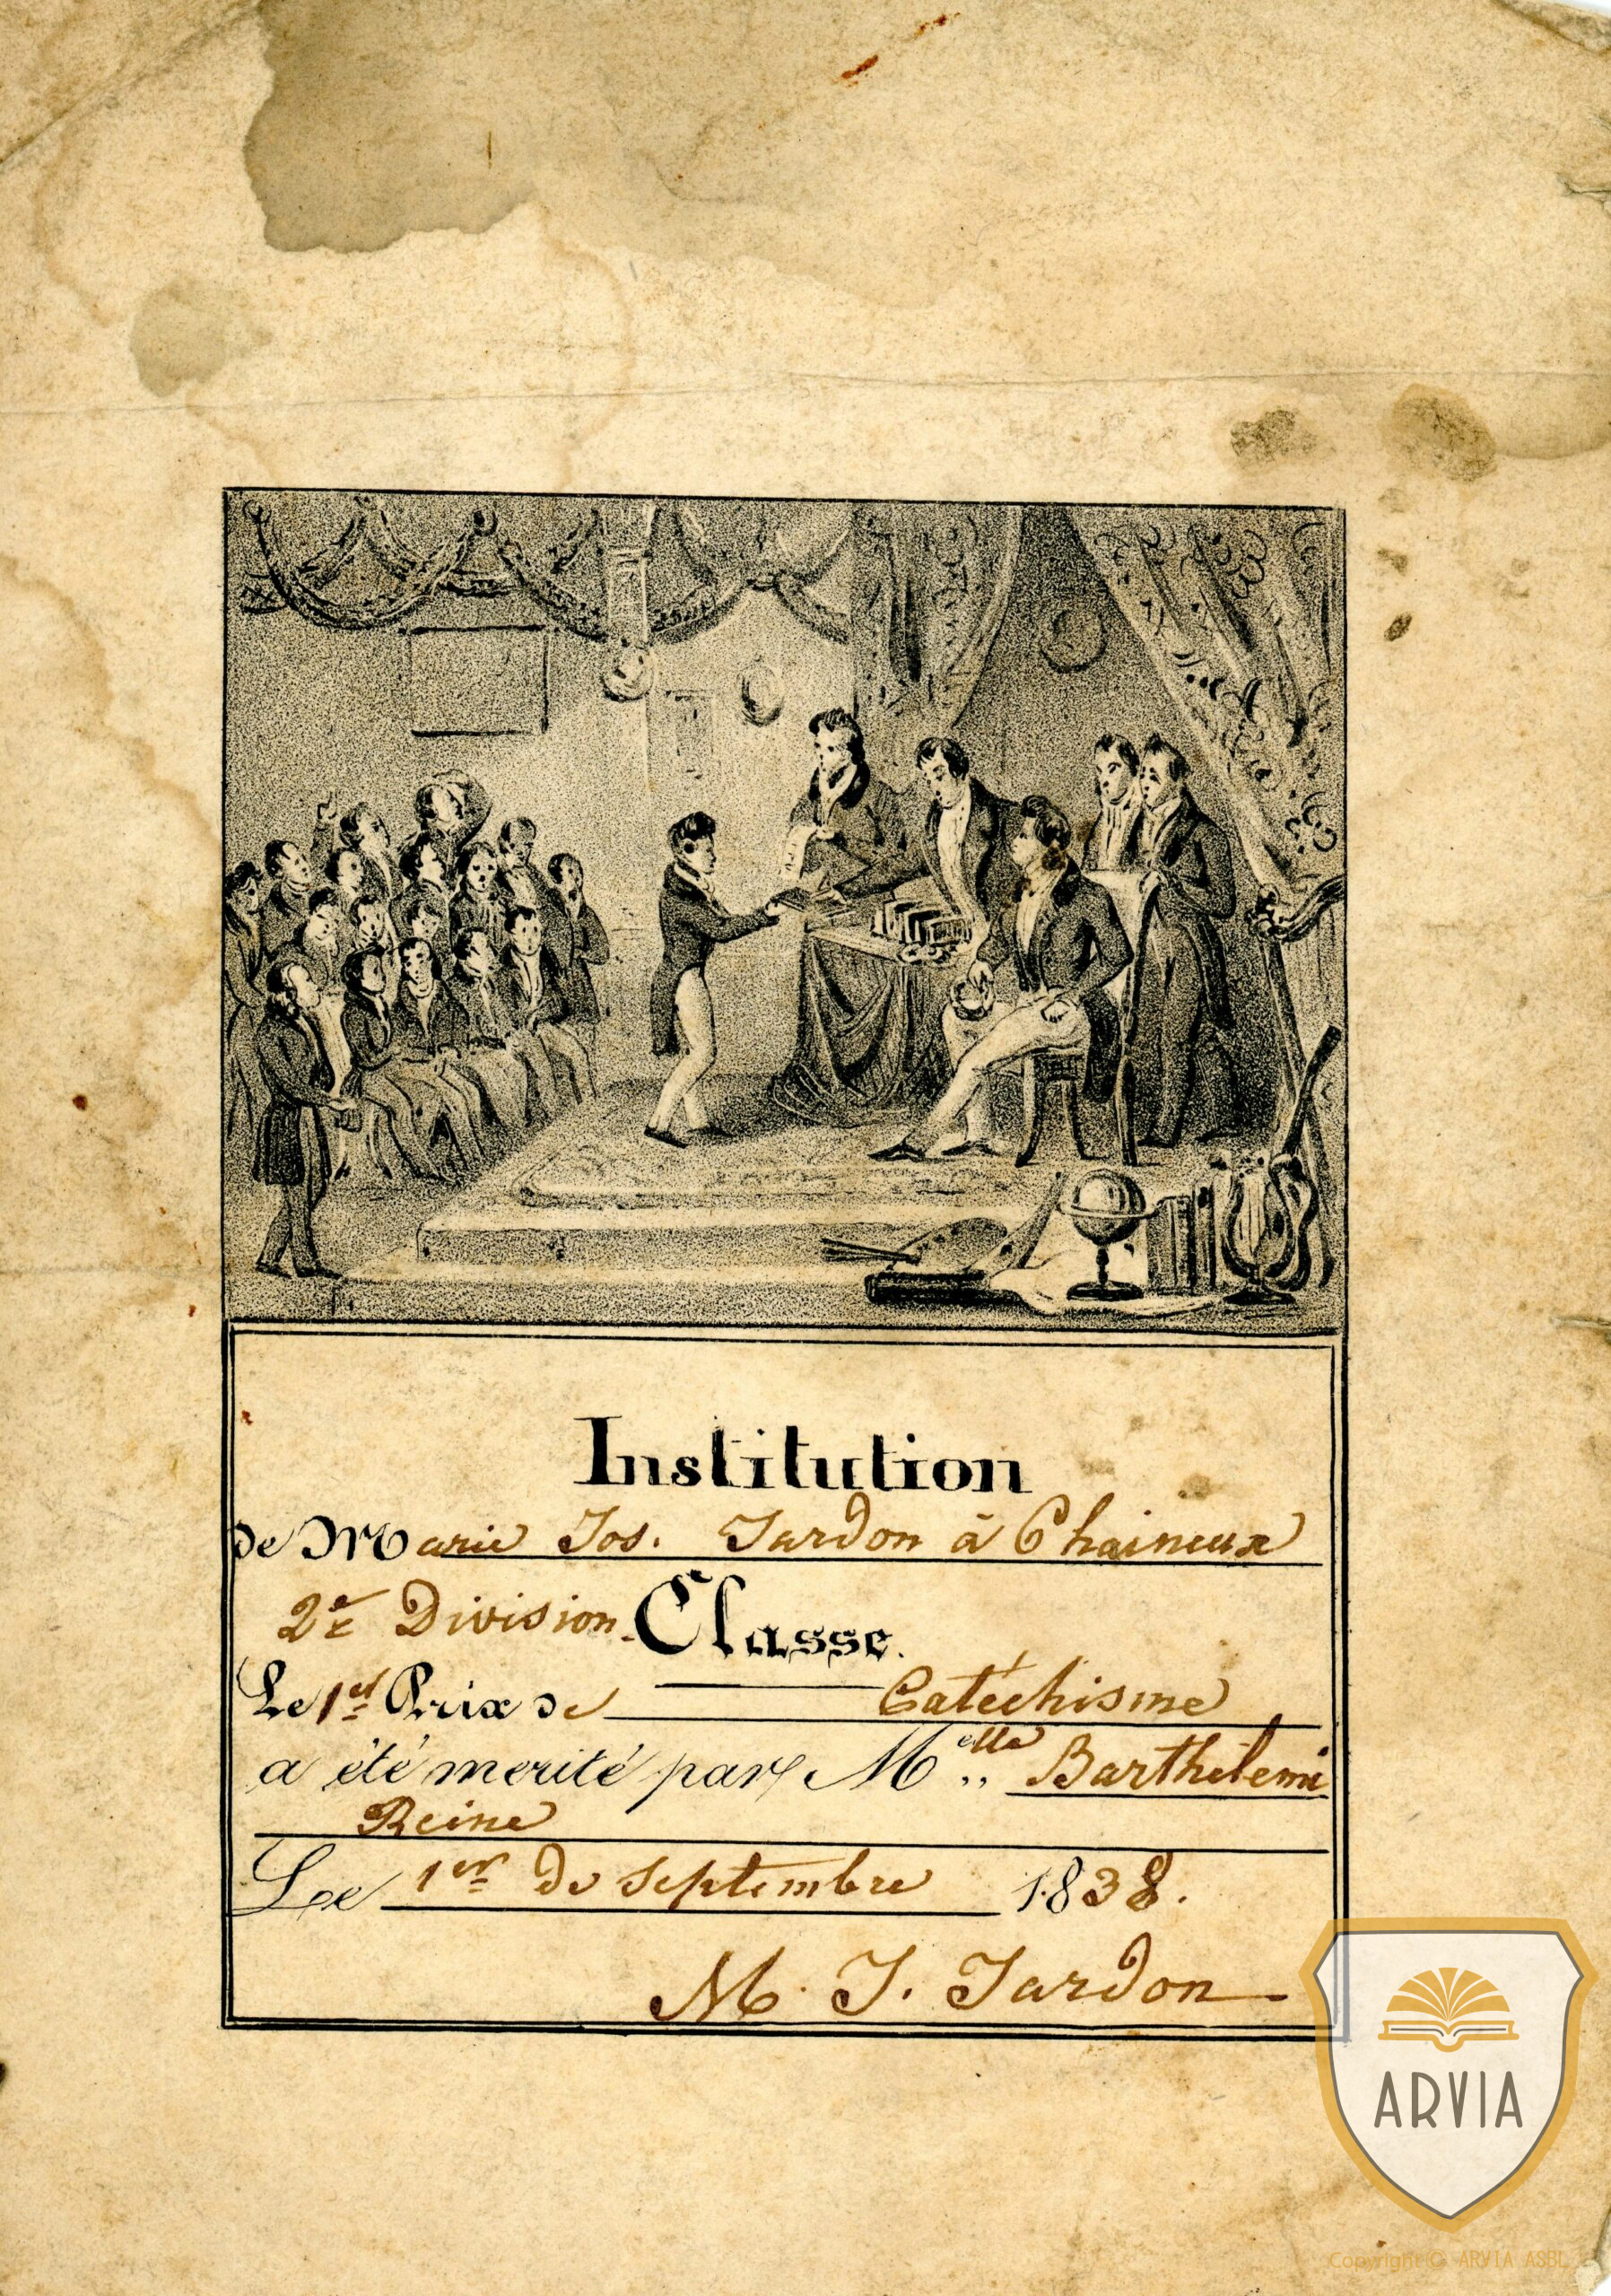 Institution
de Marie Jos. Jardon à Chaineux
2e Division Classe.
Le 1er Prix de Catéchisme
a été merité par Melle Barthelemi
Reine
Le 1er de Septembre 1838.
M. J. Jardon
ARVIA
Copyright © ARVIA ASBL